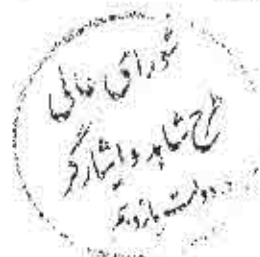 شورای عالی
طرح شاهد و ایثارگر
دولت یازدهم